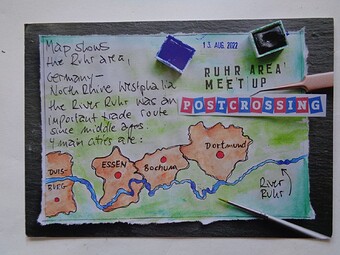 Map shows
the Ruhr area,
Germany –
North Rhine Westphalia
the River Ruhr was an
important trade route
since middle ages
4 main cities are:
13. AUG. 2022
RUHR AREA
MEET UP
POSTCROSSING
DUIS-
BURG
ESSEN
Bochum
Dortmund
River
Ruhr